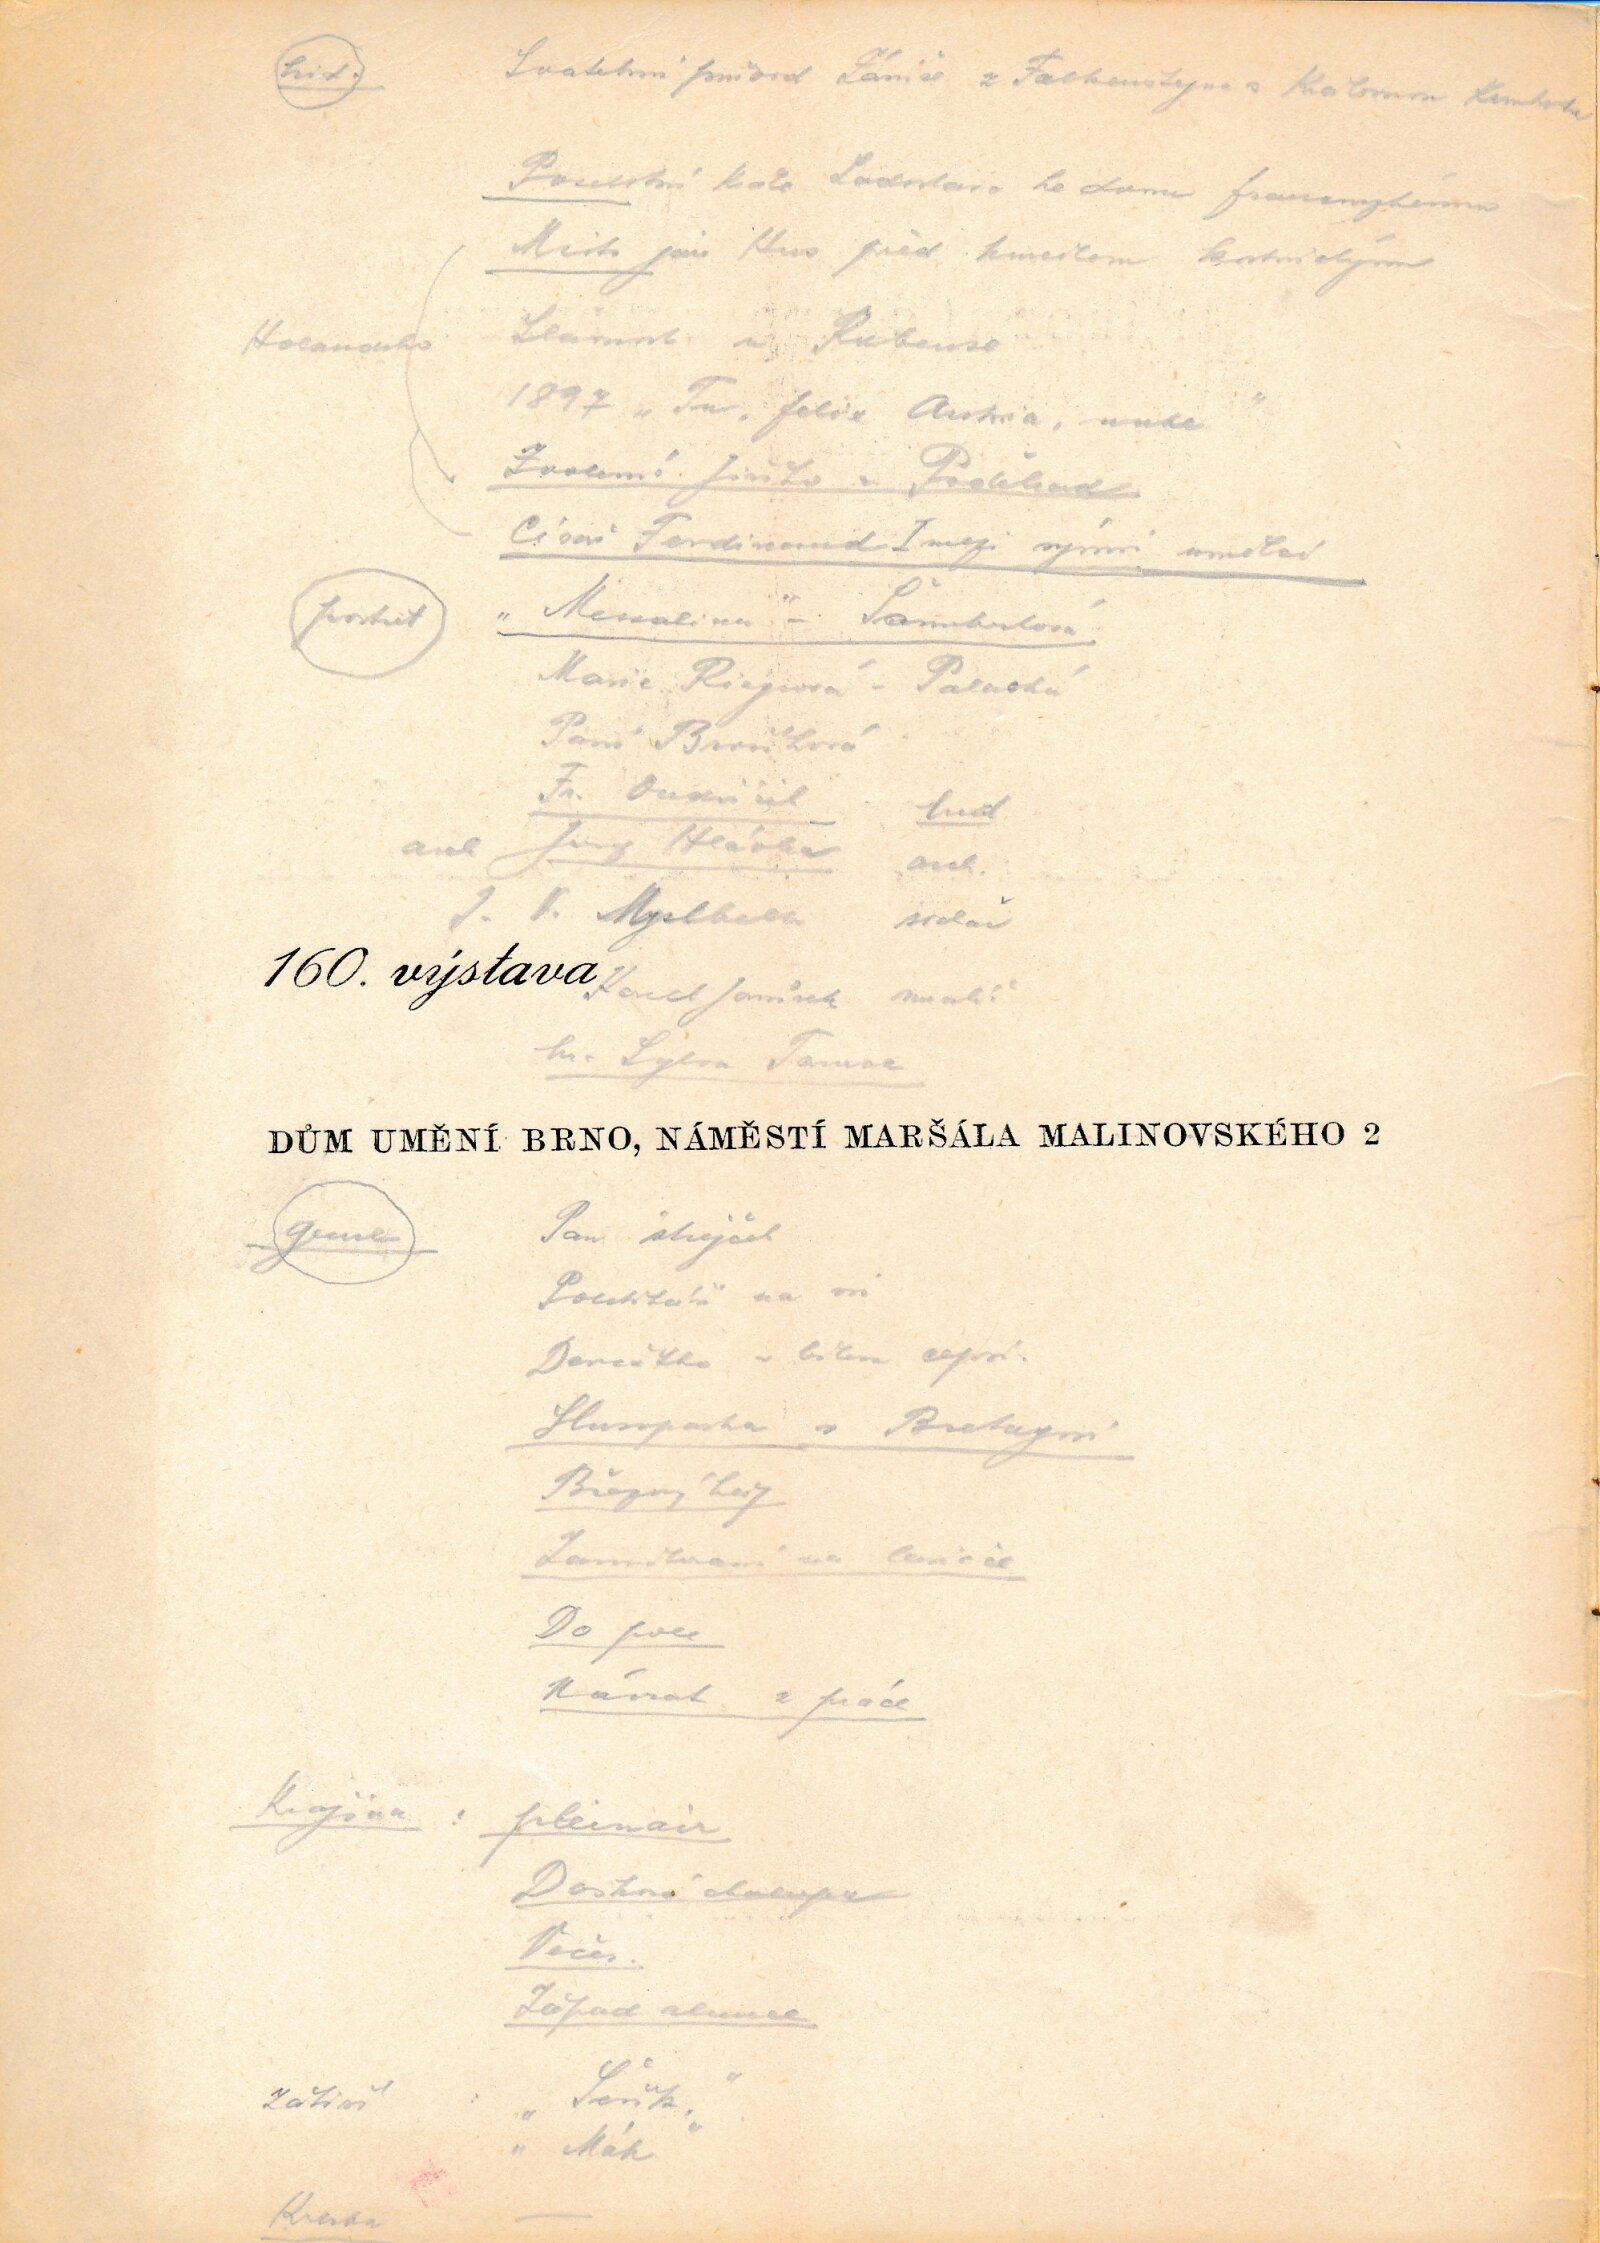 hist. Svatební průvod Záviše z Falkenštejna s Královnou Kunhutou
Poselství krále Ladislava ke dvoru francouzskému
Mistr Jan Hus před koncilem kostnickým
Holandsko Slavnost u Rubense
1897 „Tu, felix Austria, nube"
Zvolení Jiřího z Poděbrad
Císař Ferdinand I mezi svými umělci
portrét „Messalina" - Šamberková
Marie Riegrová - Palacká
Paní Brožíková
Fr. Ondříček hud
arch Josef Hlávka arch.
J. V. Myslbek sochař
160. výstava
Karel Javůrek malíř
hr. Sylva Taroucca
DŮM UMĚNÍ BRNO, NÁMĚSTÍ MARŠÁLA MALINOVSKÉHO 2
genre Pan strýček
na vsi
Děvčátko v bílém čepci.
Husopaska v Bretagni
Březový háj
na lavičce
Do pole
Návrat z práce
Krajina : pleinair
Došková chalupa
Večer.
Západ slunce
Zátiší : „Šeřík"
„Mák"
Kresba —